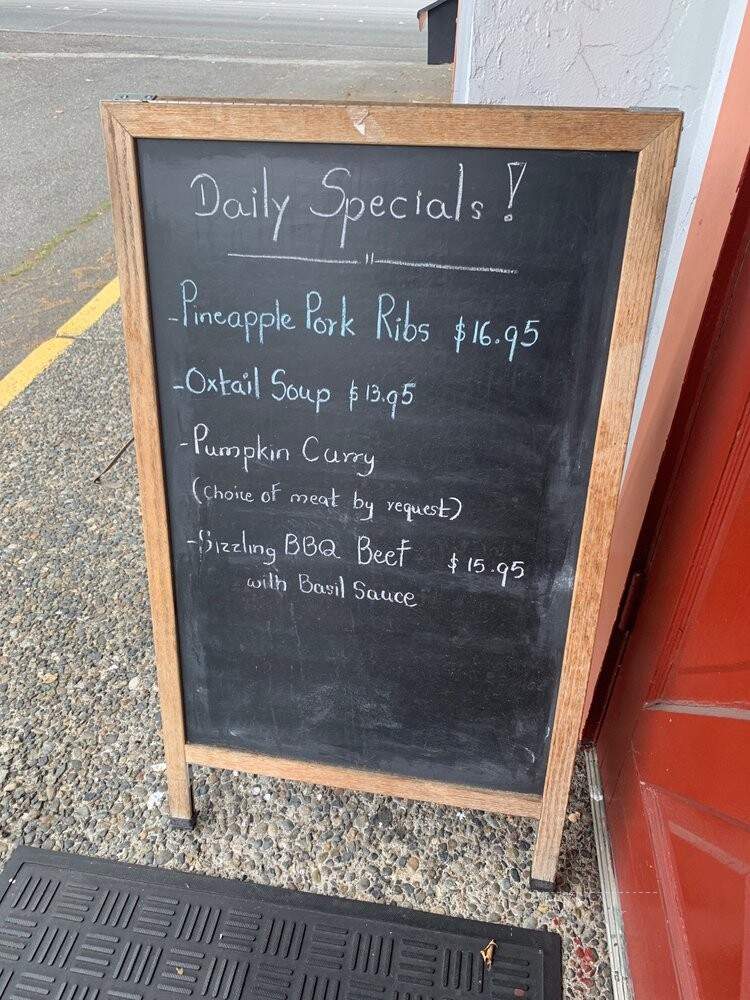 Daily Specials!
-Pineapple Pork Ribs $16.95
-Oxtail Soup $13.95
-Pumpkin Curry
(choice of meat by request)
-Sizzling BBQ Beef $15.95
with Basil Sauce